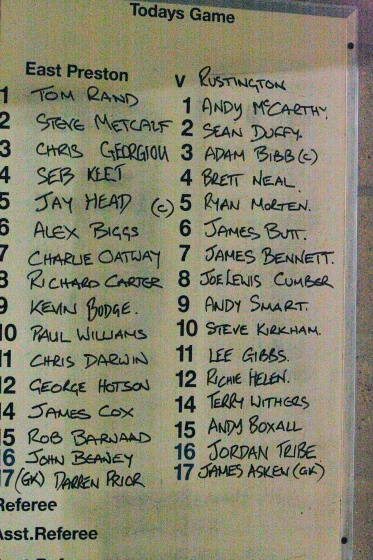 Todays Game
East Preston v RUSTINGTON
1 TOM RAND 1 ANDY McCARTHY.
2 STEVE METCALF 2 SEAN DUFFY.
3 CHRIS GEORGIOU 3 ADAM BIBB (C)
4 SEB KLET 4 BRETT NEAL.
5 JAY HEAD (C) 5 RYAN MORTEN.
6 ALEX BIGGS 6 JAMES BUTT.
7 CHARLIE OATWAY 7 JAMES BENNETT.
8 RICHARD CARTER 8 JOE LEWIS CUMBER
9 KEVIN BUDGE. 9 ANDY SMART.
10 PAUL WILLIAMS 10 STEVE KIRKHAM.
11 CHRIS DARWIN 11 LEE GIBBS.
12 GEORGE HOTSON 12 RICHIE HELEN.
14 JAMES COX 14 TERRY WITHERS
15 ROB BARNAAD 15 ANDY BOXALL
16 JOHN BEANEY 16 JORDAN TRIBE
17 (GK) DARREN PRIOR 17 JAMES ASKEN (GK)
Referee
Asst.Referee